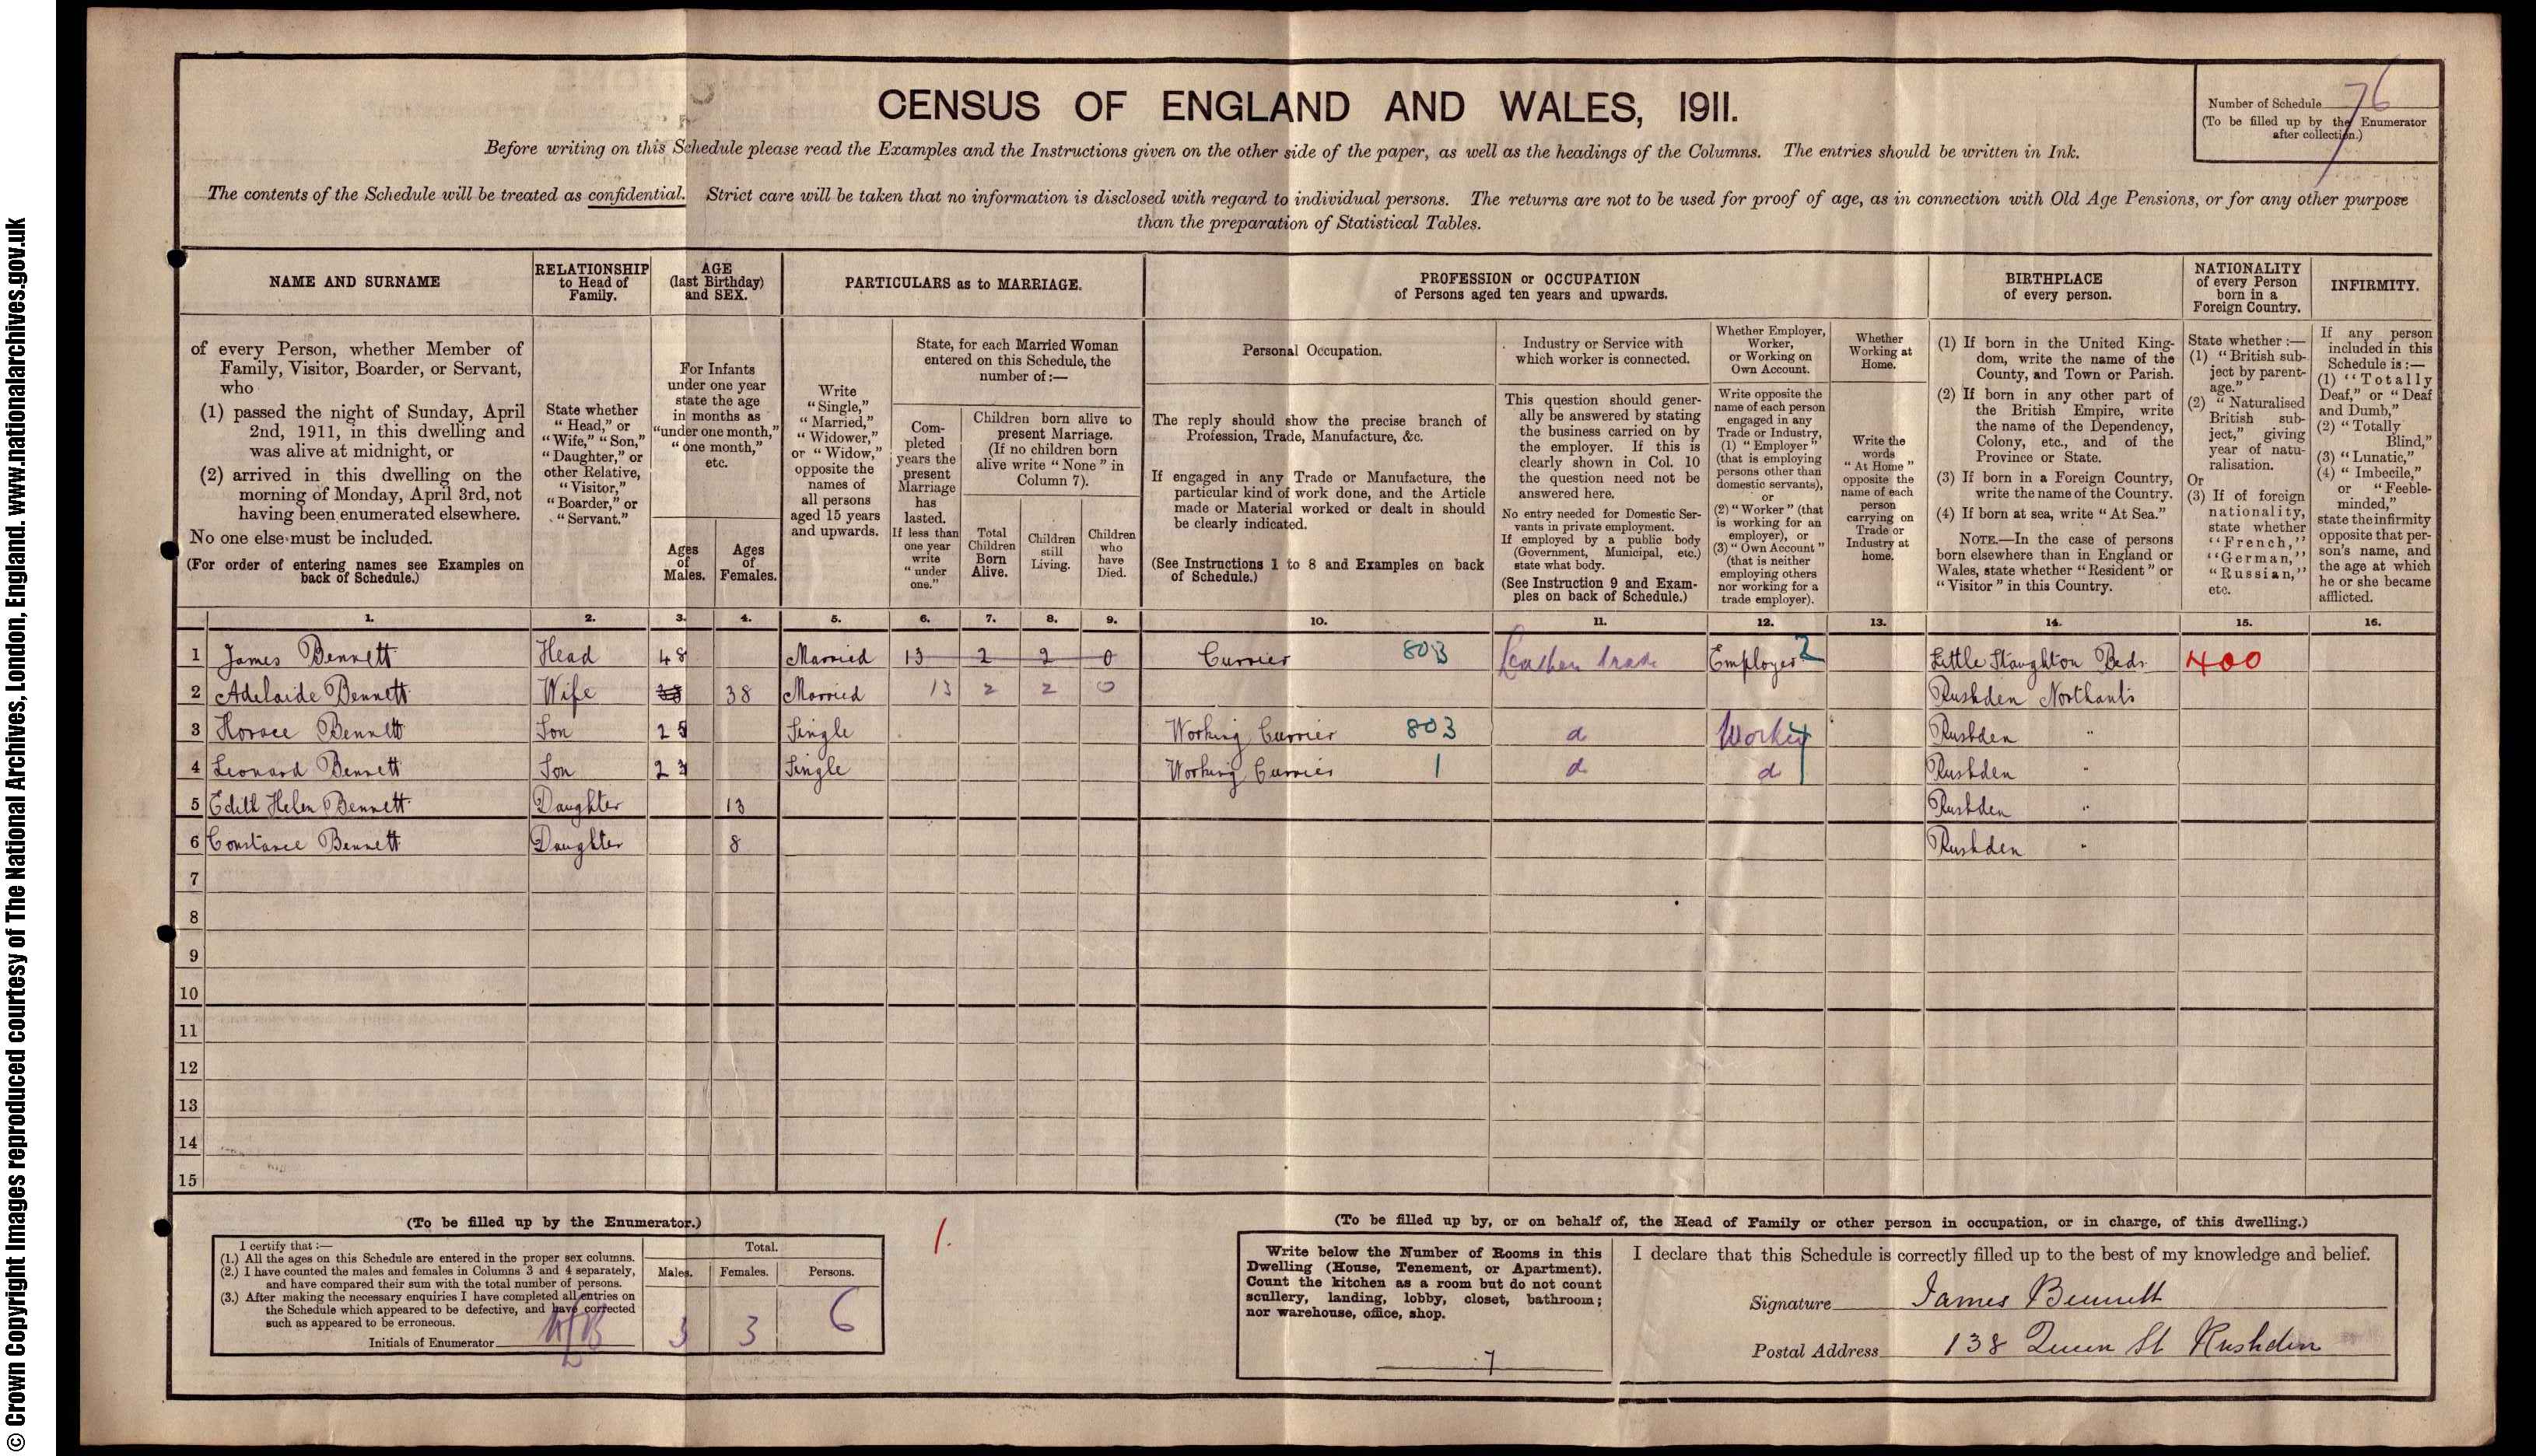 CENSUS OF ENGLAND AND WALES, 1911.
Number of Schedule 76
(To be filled up by the Enumerator
after collection.)
Before writing on this Schedule please read the Examples and the Instructions given on the other side of the paper, as well as the headings of the Columns. The entries should be written in Ink.
The contents of the Schedule will be treated as confidential. Strict care will be taken that no information is disclosed with regard to individual persons. The returns are not to be used for proof of age, as in connection with Old Age Pensions, or for any other purpose
than the preparation of Statistical Tables.
NAME AND SURNAME
of every Person, whether Member of
Family, Visitor, Boarder, or Servant,
who
(1) passed the night of Sunday, April
2nd, 1911, in this dwelling and
was alive at midnight, or
(2) arrived in this dwelling on the
morning of Monday, April 3rd, not
having been enumerated elsewhere.
No one else must be included.
(For order of entering names see Examples on
back of Schedule.)
RELATIONSHIP
to Head of
Family.
State whether
"Head," or
"Wife," "Son,"
"Daughter," or
other Relative,
"Visitor,"
"Boarder," or
"Servant."
AGE
(last Birthday)
and SEX.
For Infants
under one year
state the age
in months as
"under one month,"
"one month,"
etc.
Ages
of
Males.
Ages
of
Females.
PARTICULARS as to MARRIAGE.
Write
"Single,"
"Married,"
"Widower,"
or "Widow,"
opposite the
names of
all persons
aged 15 years
and upwards.
State, for each Married Woman
entered on this Schedule, the
number of:—
Com-
pleted
years the
present
Marriage
has
lasted.
If less than
one year
write
"under
one."
Children born alive to
present Marriage.
(If no children born
alive write "None" in
Column 7).
Total
Children
Born
Alive.
Children
still
Living.
Children
who
have
Died.
PROFESSION or OCCUPATION
of Persons aged ten years and upwards.
Personal Occupation.
The reply should show the precise branch of
Profession, Trade, Manufacture, &c.
If engaged in any Trade or Manufacture, the
particular kind of work done, and the Article
made or Material worked or dealt in should
be clearly indicated.
(See Instructions 1 to 8 and Examples on back
of Schedule.)
Industry or Service with
which worker is connected.
This question should gener-
ally be answered by stating
the business carried on by
the employer. If this is
clearly shown in Col. 10
the question need not be
answered here.
No entry needed for Domestic Ser-
vants in private employment.
If employed by a public body
(Government, Municipal, etc.)
state what body.
(See Instruction 9 and Exam-
ples on back of Schedule.)
Whether Employer,
Worker,
or Working on
Own Account.
Write opposite the
name of each person
engaged in any
Trade or Industry,
(1) "Employer"
(that is employing
persons other than
domestic servants),
or
(2) "Worker" (that
is working for an
employer), or
(3) "Own Account"
(that is neither
employing others
nor working for a
trade employer).
Whether
Working at
Home.
Write the
words
"At Home"
opposite the
name of each
person
carrying on
Trade or
Industry at
home.
BIRTHPLACE
of every person.
(1) If born in the United King-
dom, write the name of the
County, and Town or Parish.
(2) If born in any other part of
the British Empire, write
the name of the Dependency,
Colony, etc., and of the
Province or State.
(3) If born in a Foreign Country,
write the name of the Country.
(4) If born at sea, write "At Sea."
NOTE.—In the case of persons
born elsewhere than in England or
Wales, state whether "Resident" or
"Visitor" in this Country.
NATIONALITY
of every Person
born in a
Foreign Country.
State whether:—
(1) "British sub-
ject by parent-
age."
(2) "Naturalised
British sub-
ject," giving
year of natu-
ralisation.
Or
(3) If of foreign
nationality,
state whether
"French,"
"German,"
"Russian,"
etc.
INFIRMITY.
If any person
included in this
Schedule is:—
(1) "Totally
Deaf," or "Deaf
and Dumb,"
(2) "Totally
Blind,"
(3) "Lunatic,"
(4) "Imbecile,"
or "Feeble-
minded,"
state the infirmity
opposite that per-
son's name, and
the age at which
he or she became
afflicted.
1. 2. 3. 4. 5. 6. 7. 8. 9. 10. 11. 12. 13. 14. 15. 16.
1 James Bennett Head 48 Married 13 2 2 0 Currier 803 Leather trade Employer 2 Little Staughton Beds. 400
2 Adelaide Bennett Wife 38 Married 13 2 2 0 Rushden Northants
3 Horace Bennett Son 25 Single Working Currier 803 d Worker Rushden "
4 Leonard Bennett Son 23 Single Working Currier 1 d d Rushden "
5 Edith Helen Bennett Daughter 13 Rushden "
6 Constance Bennett Daughter 8 Rushden "
7
8
9
10
11
12
13
14
15
(To be filled up by the Enumerator.)
I certify that:—
(1.) All the ages on this Schedule are entered in the proper sex columns.
(2.) I have counted the males and females in Columns 3 and 4 separately,
and have compared their sum with the total number of persons.
(3.) After making the necessary enquiries I have completed all entries on
the Schedule which appeared to be defective, and have corrected
such as appeared to be erroneous.
Initials of Enumerator
Total.
Males. Females. Persons.
3 3 6
1.
(To be filled up by, or on behalf of, the Head of Family or other person in occupation, or in charge, of this dwelling.)
Write below the Number of Rooms in this
Dwelling (House, Tenement, or Apartment).
Count the kitchen as a room but do not count
scullery, landing, lobby, closet, bathroom;
nor warehouse, office, shop.
7
I declare that this Schedule is correctly filled up to the best of my knowledge and belief.
Signature James Bennett
Postal Address 138 Queen St Rushden
© Crown Copyright Images reproduced courtesy of The National Archives, London, England. www.nationalarchives.gov.uk